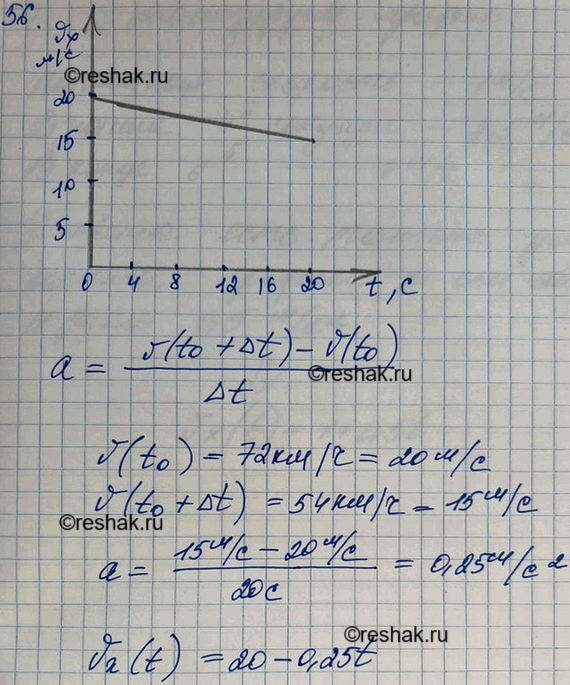 56.
ϑx
м/с
©reshak.ru
20
15
10
5
0 4 8 12 16 20 t, с
a = ϑ(t0 + Δt) – ϑ(t0) / Δt
©reshak.ru
ϑ(t0) = 72км/ч = 20 м/с
ϑ(t0 + Δt) = 54км/ч = 15 м/с
©reshak.ru
a = 15 м/с – 20 м/с / 20с = 0,25 м/с²
©reshak.ru
ϑx(t) = 20 – 0,25t